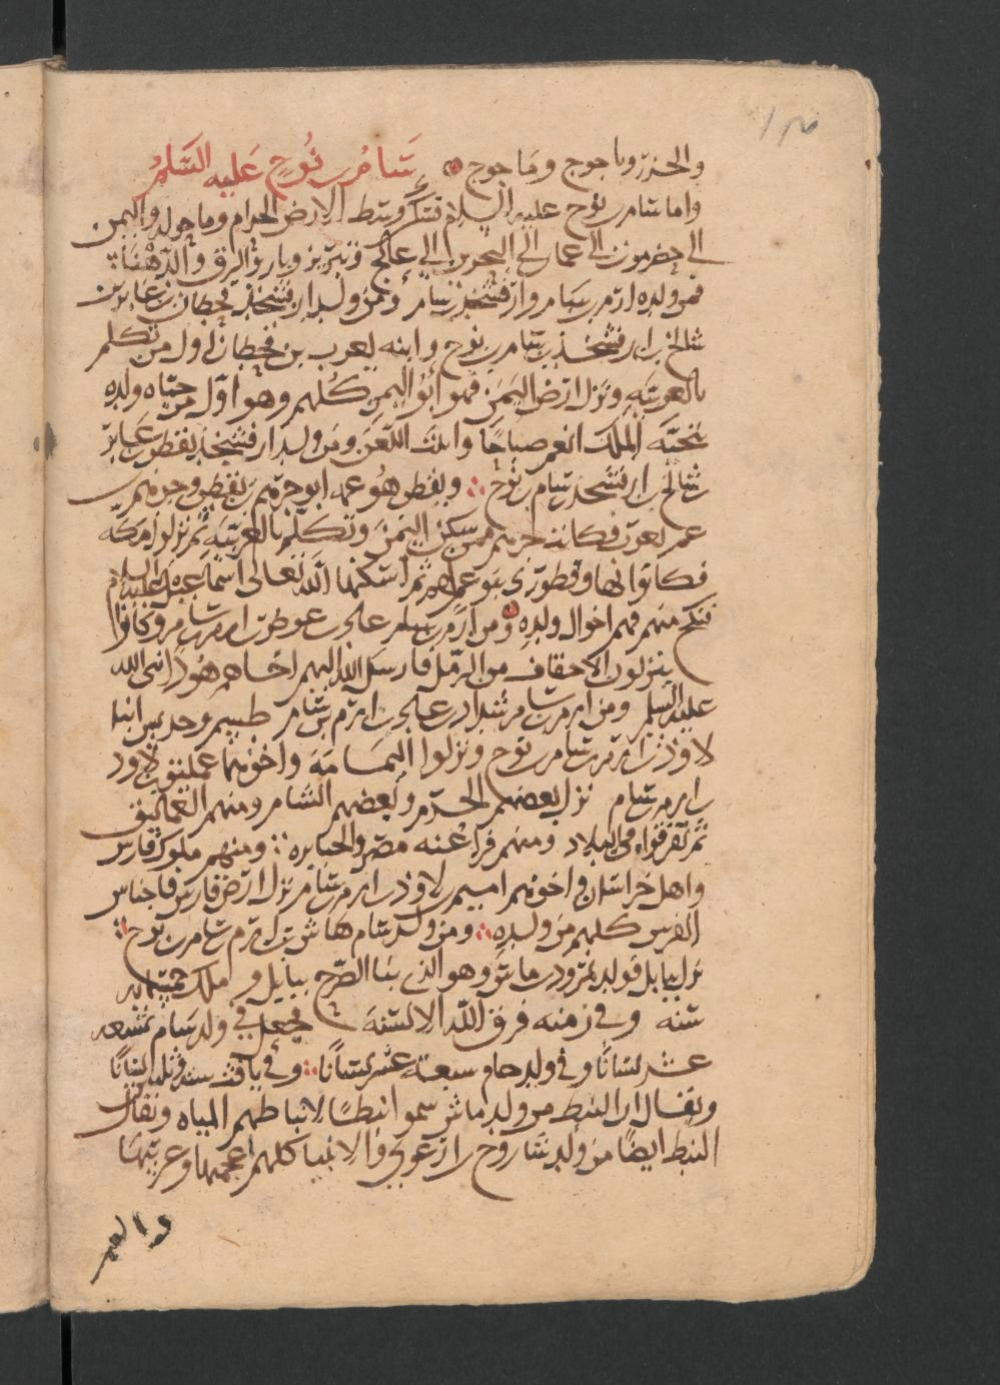 والخزر وياجوج وماجوج سام بن نوح عليه السلم
واما سام بن نوح عليه السلام فسكن وسط الارض الحرام وما حوله واليمن
الى حضرموت الى عمان الى البحرين الى عالج ويبرين ووبار والدو والدهنا
فمن ولده ارم بن سام وارفشخذ بن سام ومن ولد ارفشخذ قحطان بن عابر بن
شالخ بن ارفشخذ بن سام بن نوح وابنه يعرب بن قحطان اول من تكلم
بالعربيه ونزل ارض اليمن فهو ابو اليمن كلهم وهو اول من حياه ولده
بتحيه الملك انعم صباحا وابيت اللعن ومن ولد ارفشخذ يقطن بن عابر
بن شالخ بن ارفشخذ بن سام بن نوح ويقطن هو عم ابو جرهم بن يقطن وجرهم بن
عم يعرب فكانت جرهم ممن سكن اليمن وتكلم بالعربيه ثم نزلوا مكه
فكانوا بها وقطورى بنو عم لهم ثم اسكنها الله تعالى اسماعيل عليه السلام
فنكح منهم فهم اخوال ولده ومن ارم بن سام عاد بن عوض بن ارم بن سام وكانوا
ينزلون الاحقاف من الرمل فارسل الله اليهم اخاهم هودا نبي الله
عليه السلم ومن ارم بن سام شداد بن عاد بن ارم بن سام طسم وجديس ابنا
لاوذ بن ارم بن سام بن نوح ونزلوا اليمامه واخوهما عمليق بن لاود
بن ارم بن سام نزل بعضهم الحرم وبعضهم الشام ومنهم العماليق
ثم تفرقوا في البلاد ومنهم فراعنه مصر والجبابره ومنهم ملوك فارس
واهل خراسان واخوهم اميم بن لاوذ بن ارم بن سام نزل ارض فارس فاجناس
الفرس كلهم من ولده ومن ولد سام ماش بن ارم بن سام بن نوح
نزل ببابل فولد نمرود بن ماش وهو الذي بنا الصرح ببابل وملك خمسمايه
سنه وفي زمنه فرق الله الالسنه فجعل في ولد سام تسعه
عشر لسانا وفي ولد حام سبعة عشر لسانا وفي يافث سته وثلثين لسانا
ويقال ان النبط من ولد ماش سموا نبطا لانباطهم المياه ويقال
النبط ايضا من ولد شاروخ بن ارعوى والانبيا كلهم عجميها وعربيها